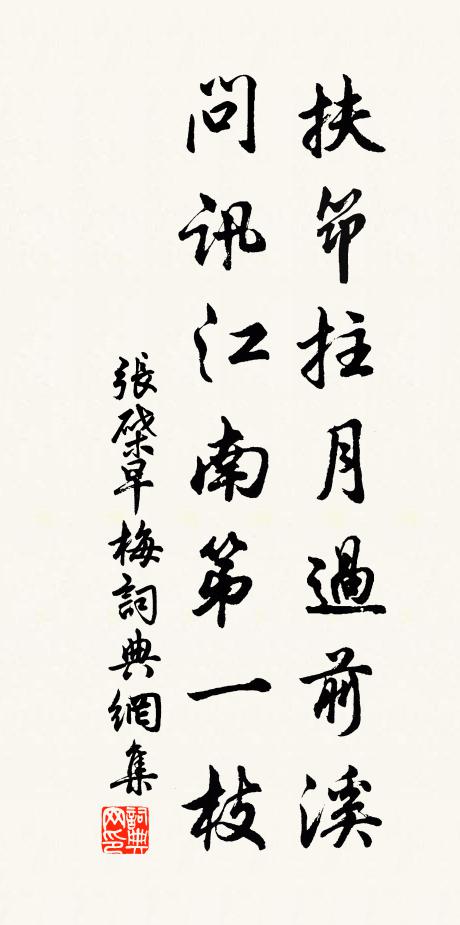 扶筇拄月過前溪
問訊江南第一枝
張榘早梅詞典網集
詞典网印